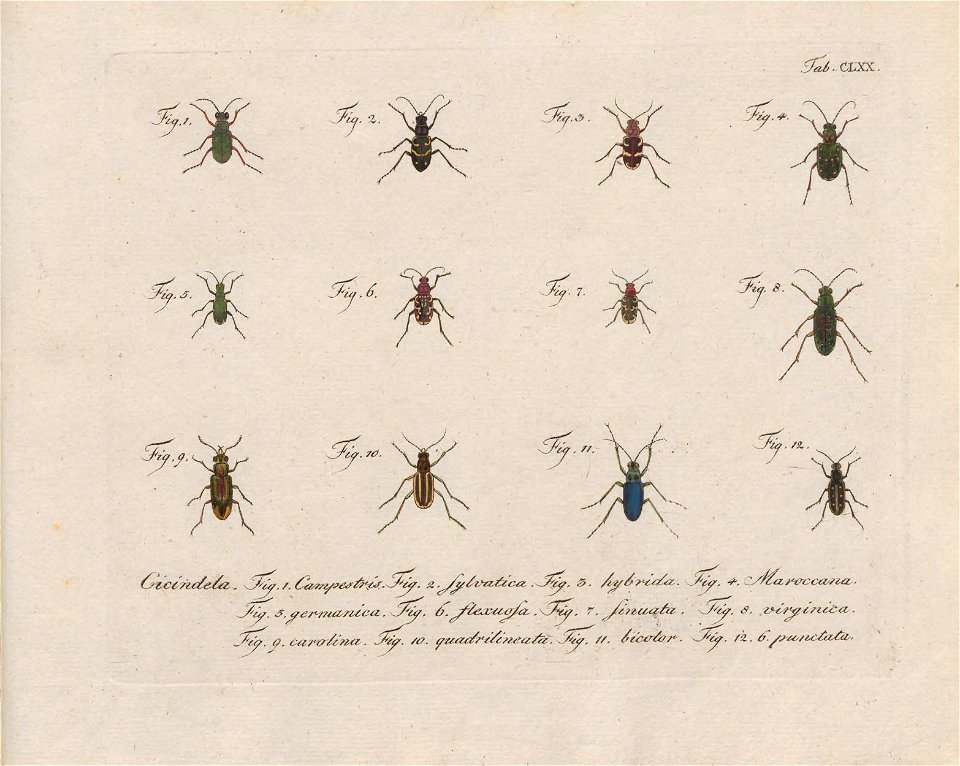 Tab. CLXX.
Fig. 1. Fig. 2. Fig. 3. Fig. 4.
Fig. 5. Fig. 6. Fig. 7. Fig. 8.
Fig. 9. Fig. 10. Fig. 11. Fig. 12.
Cicindela. Fig. 1. Campestris. Fig. 2. ſylvatica. Fig. 3. hybrida. Fig. 4. Maroccana.
Fig. 5. germanica. Fig. 6. flexuoſa. Fig. 7. ſinuata. Fig. 8. virginica.
Fig. 9. carolina. Fig. 10. quadrilineata. Fig. 11. bicolor. Fig. 12. 6. punctata.